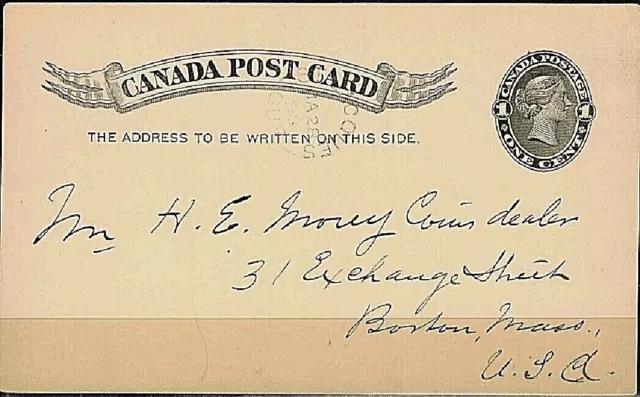 CANADA POST CARD
CANADA POSTAGE
1 1
ONE CENT
THE ADDRESS TO BE WRITTEN ON THIS SIDE.
Mr H. E. Morey Coins dealer
31 Exchange Street
Boston, Mass.,
U.S.A.